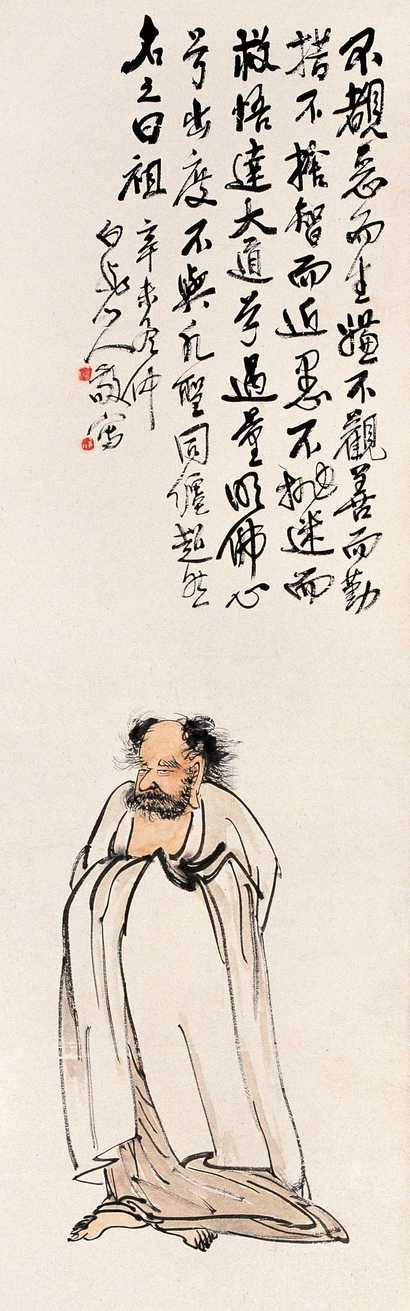 不覩惡而生嫌不觀善而勤
措不捨智而近愚不拋迷而
就悟達大道兮過量明佛心
兮出度不與凡聖同纏超然
名之曰祖
辛未冬仲
白龍山人敬寫